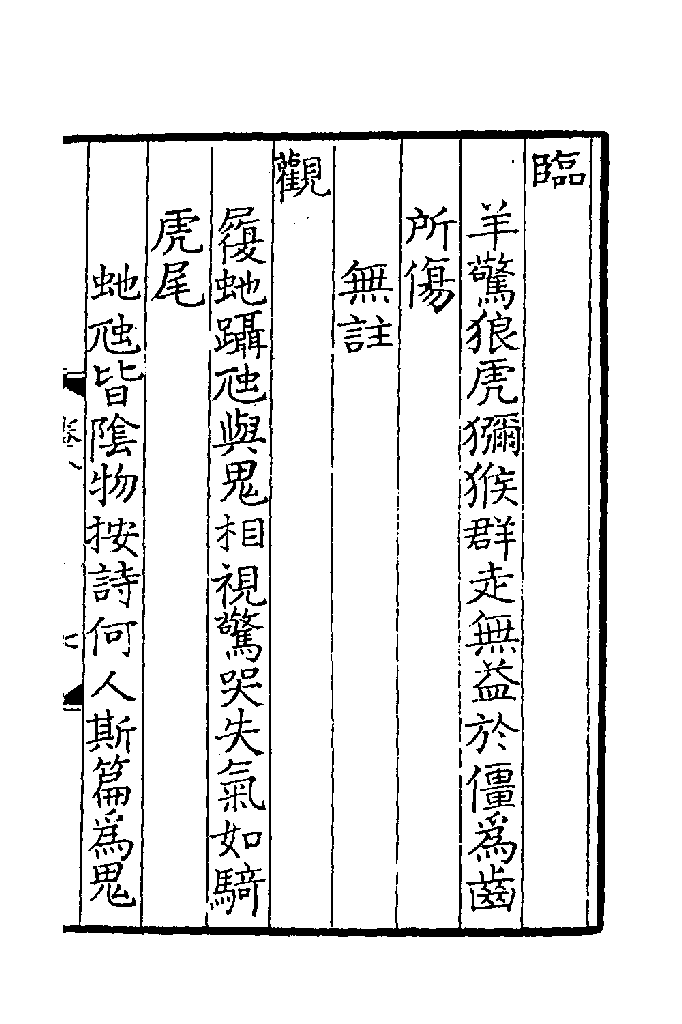 臨
羊驚狼虎獼猴群走無益於僵爲齒
所傷
無註
觀
履虵躡虺與鬼相視驚哭失氣如騎
虎尾
虵虺皆隂物按詩何人斯篇爲鬼
卷八
七